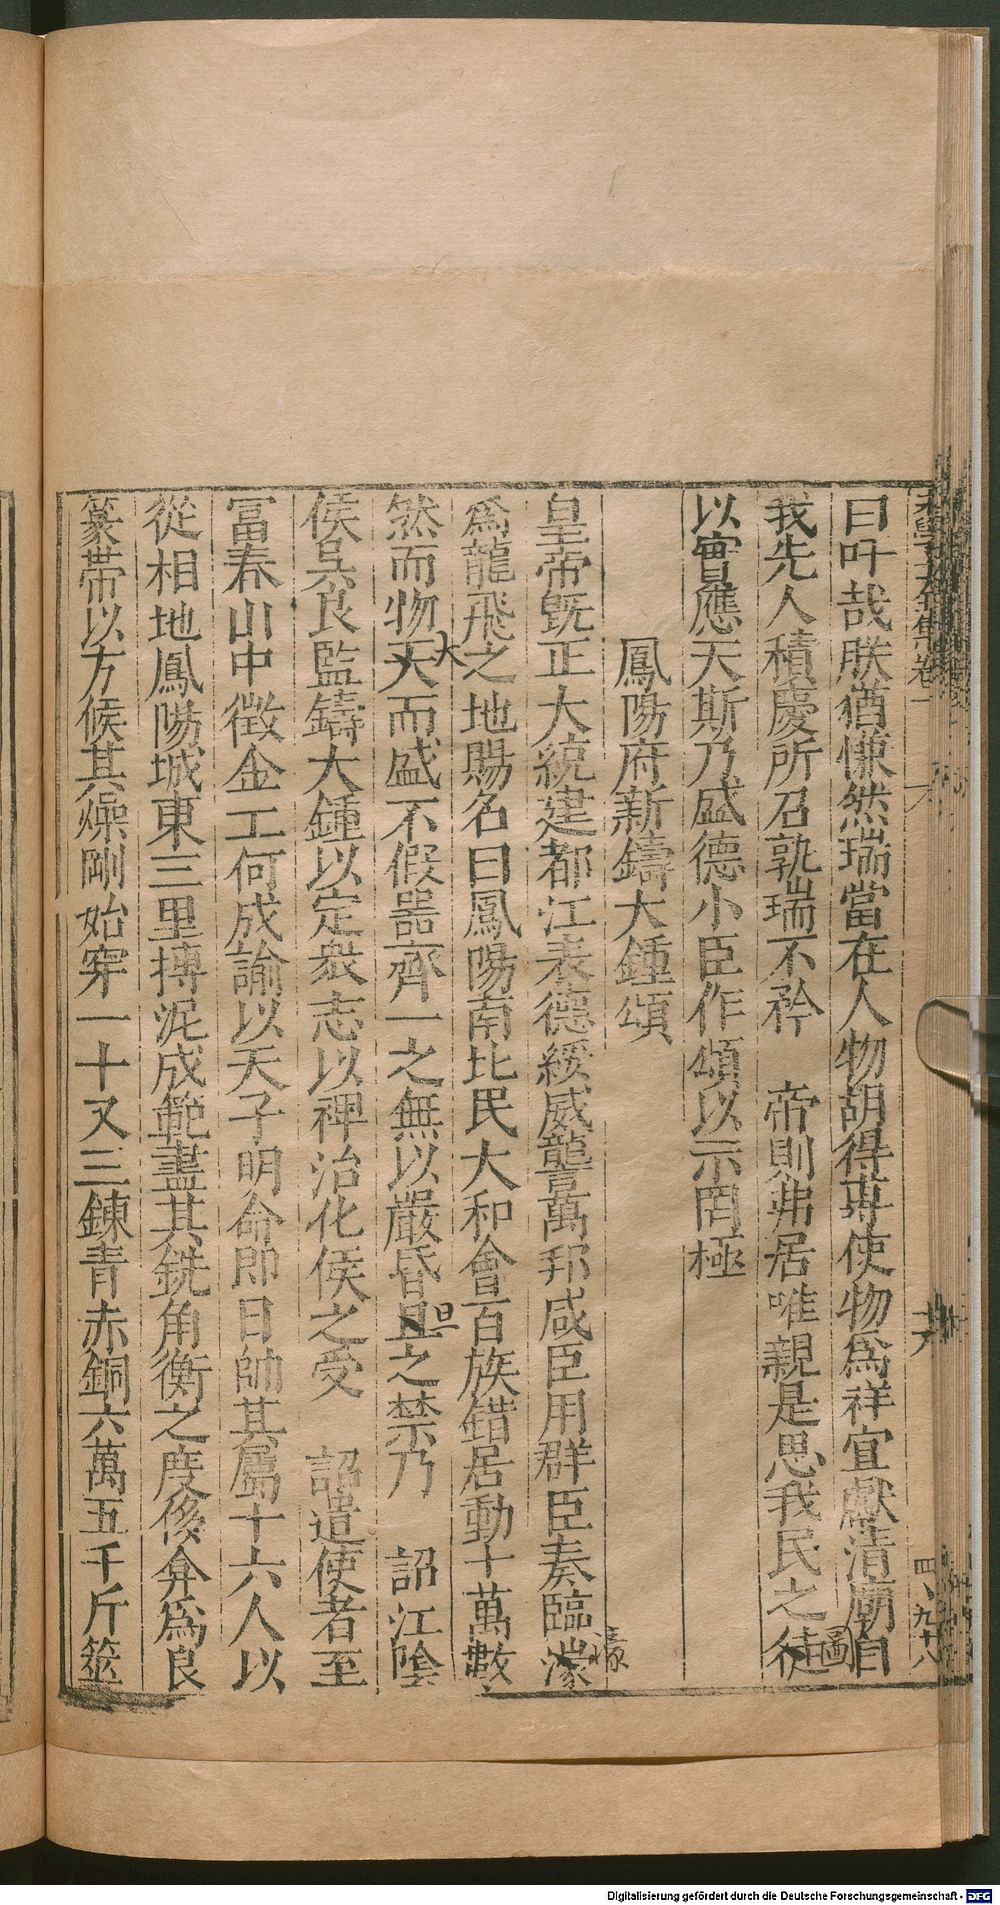 曰吁哉朕猶慊然瑞當在人物胡得專使物爲祥宜獻清廟自
我先人積慶所召孰瑞不矜　帝則弗居唯親是思我民之徒圖
以實應天斯乃盛德小臣作頌以示罔極
鳳陽府新鑄大鍾頌
皇帝旣正大統建都江表德綏威讋萬邦咸臣用群臣奏臨濠濠
爲龍飛之地賜名曰鳳陽南北民大和會百族錯居動十萬數
然而物大大而盛不假噐齊一之無以嚴昏旦旦之禁乃　詔江陰
侯吳良監鑄大鍾以定衆志以裨治化侯之受　詔遣使者至
冨春山中徵金工何成諭以天子明命即日帥其屬十六人以
從相地鳳陽城東三里摶泥成範盡其銑角衡之度後弇爲良
篆帶以方候其燥剛始穿一十又三鍊青赤銅六萬五千斤筵
卷一
十六
四、九十八
Digitalisierung gefördert durch die Deutsche Forschungsgemeinschaft - DFG